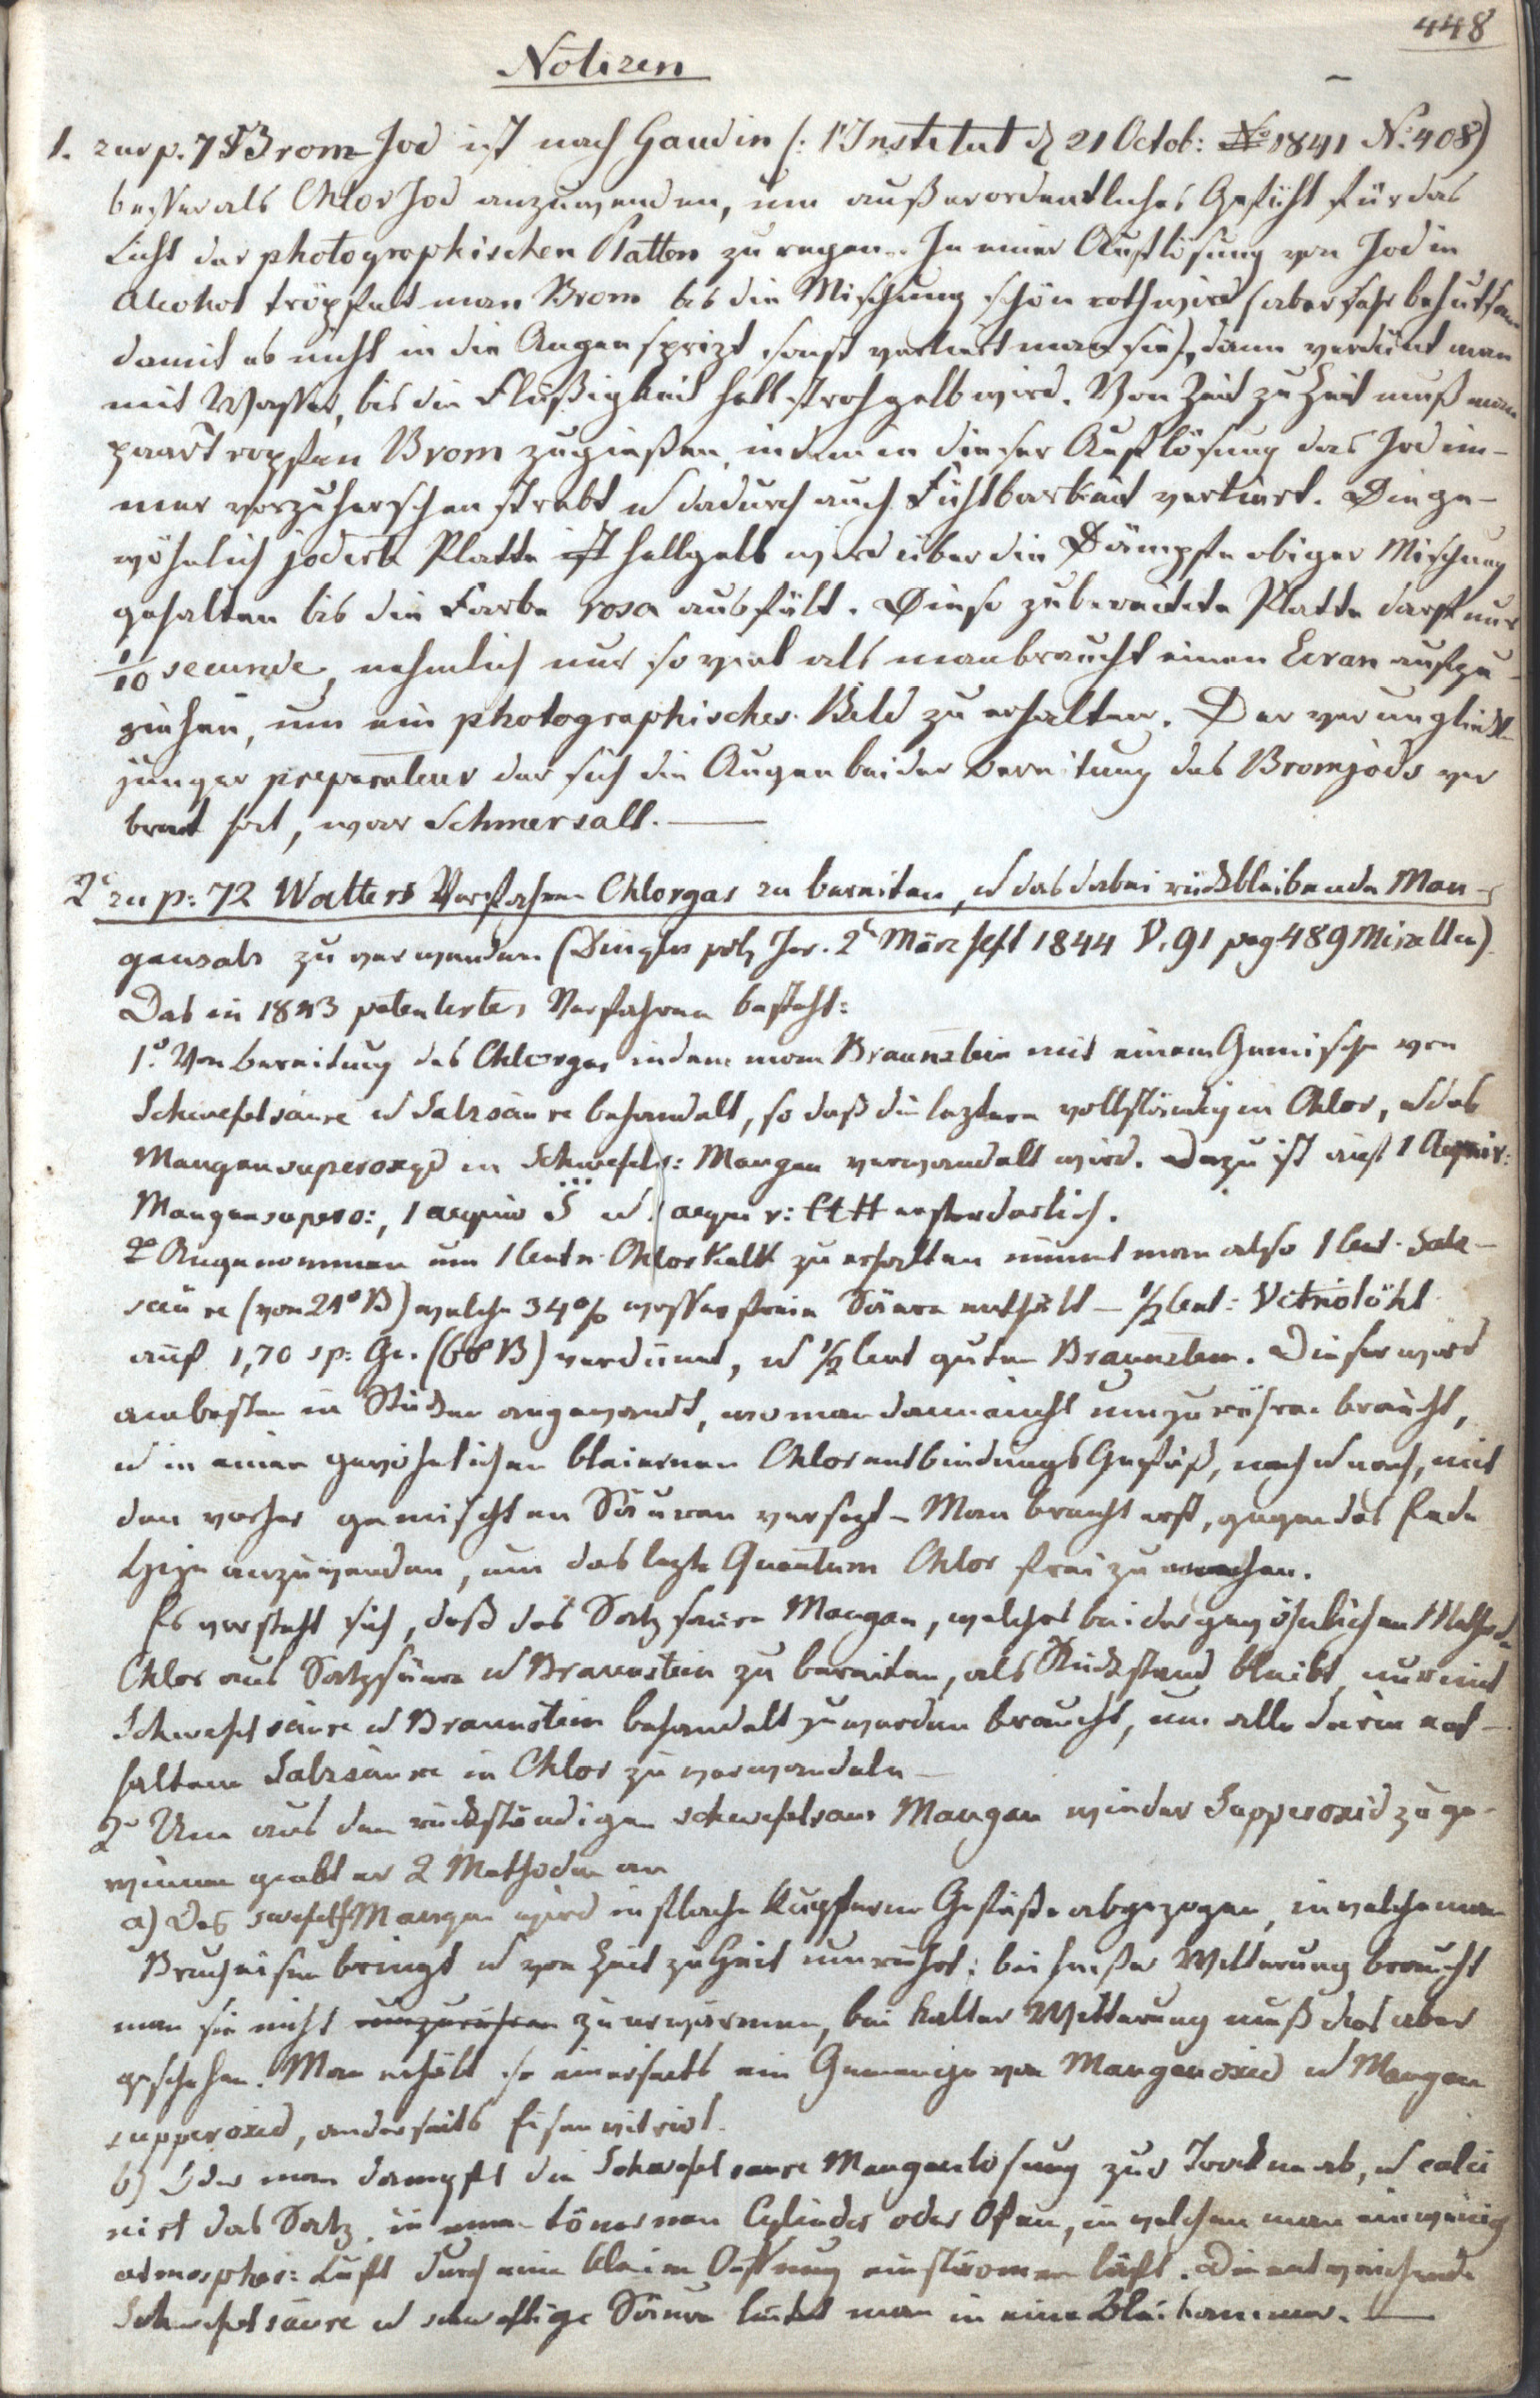 448
Notizen
1. zur p. 7 Brom-Jod ist nach Gaudin (: l'Institut d 21 Octob: 1841 No. 408)
besser als Chlor Jod anzuwenden, um außerordentliches Gefühl für das
Licht der photographischen Platten zu regen. In einer Auflösung von Jod in
Alcohol tröpfelt man Brom bis die Mischung schön roth wird (aber sehr behutsam
damit es nicht in die Augen sprizt, sonst verliert man sie), dann verdünt man
mit Wasser, bis die Flüßigkeit hell strohgelb wird. Von Zeit zu Zeit muß man
paar Tropfen Brom zugießen, indem in dieser Auflösung das Jod im-
mer vorzuherschen strebt u dadurch auch Fühlbarkeit verliert. Die ge-
wöhnlich jodirte Platte hellgelb wird über die Dämpfe obiger Mischung
gehalten bis die Farbe rosa ausfält. Diese zubereitete Platte darf nur
1/10 secunde, nehmlich nur so viel als man braucht einen Ecran aufzu-
ziehen, um ein photographisches Bild zu erhalten. Der verunglückte
junger preparateur der sich die Augen bei der Bereitung des Bromjods ver
brant hat, war Schmersall. —
2. zu p: 72 Walters Verfahren Chlorgas zu bereiten, u das dabei rückbleibende Man-
gansalz zu verwenden (Dingler pol. Jor. 2t März heft 1844 V. 91 pag 489 Miszellen).
Das in 1843 patentirtes Verfahren besteht:
1o. Von Bereitung des Chlorgas indem man Braunstein mit einem Gemische von
Schwefelsäure u Salzsäure behandelt, so daß die leztere vollständig in Chlor, u das
Mangansuperoxyd in Schwefels: Mangan verwandelt wird. Dazu ist auf 1 Aequiv:
Mangansupero:, 1 aequiv S u 1 aequiv: ClH erforderlich.
Angenommen um 1 Centn. Chlorkalk zu erhalten nimmt man also 1 Cent. Salz-
säure (von 21° B) welche 34 % wasserfreie Säure enthält — 1/2 Cent: Vitriolöhl
auf 1,70 sp: Ge. (60 B) verdünnt, u 1/2 Cent guten Braunstein. Dieser wird
am besten in Stücken angewandt, wo man dann nicht umzurühren braucht,
u in einem gewöhnlichen bleiernen Chlorentbindungs Gefäß, nach u nach, mit
den vorher gemischten Säuren versezt — Man braucht erst, gegen das Ende
Hize anzuwenden, um das lezte Quantum Chlor frei zu machen.
Es versteht sich, daß das Salzsaure Mangan, welches bei der gewöhnlichen Methode
Chlor aus Salzsäure u Braunstein zu bereiten, als Rückstand bleibt, nur mit
Schwefelsäure u Braunstein behandelt zu werden braucht, um alle darin ent-
haltene Salzsäure in Chlor zu verwandeln —
2o Um aus dem rückständigen schwefelsaur Mangan wieder Supperoxid zu ge-
winnen giebt er 2 Methoden an
a) Das Mangan wird in flache kupferne Gefäße abgezogen, in welche man
Brucheisen bringt u von Zeit zu Zeit umrührt; bei heißer Witterung braucht
man sie nicht umzurühren zu erwärmen, bei kalter Witterung muß dies aber
geschehen. Man erhält so einerseits ein Gemenge von Manganoxid u Mangan
supperoxid, anderseits Eisenvitriol.
b) Oder man dampft die Schwefelsaure Manganlösung zur Trockne ab, u calci
nirt das Salz in einen tönernen Cylinder oder Ofen, in welchen man ein wenig
atmosphär: Luft durch eine kleine Oeffnung einströmen läßt. Die entweichende
Schwefelsäure u schweflige Säure leitet man in eine Bleikammer. —